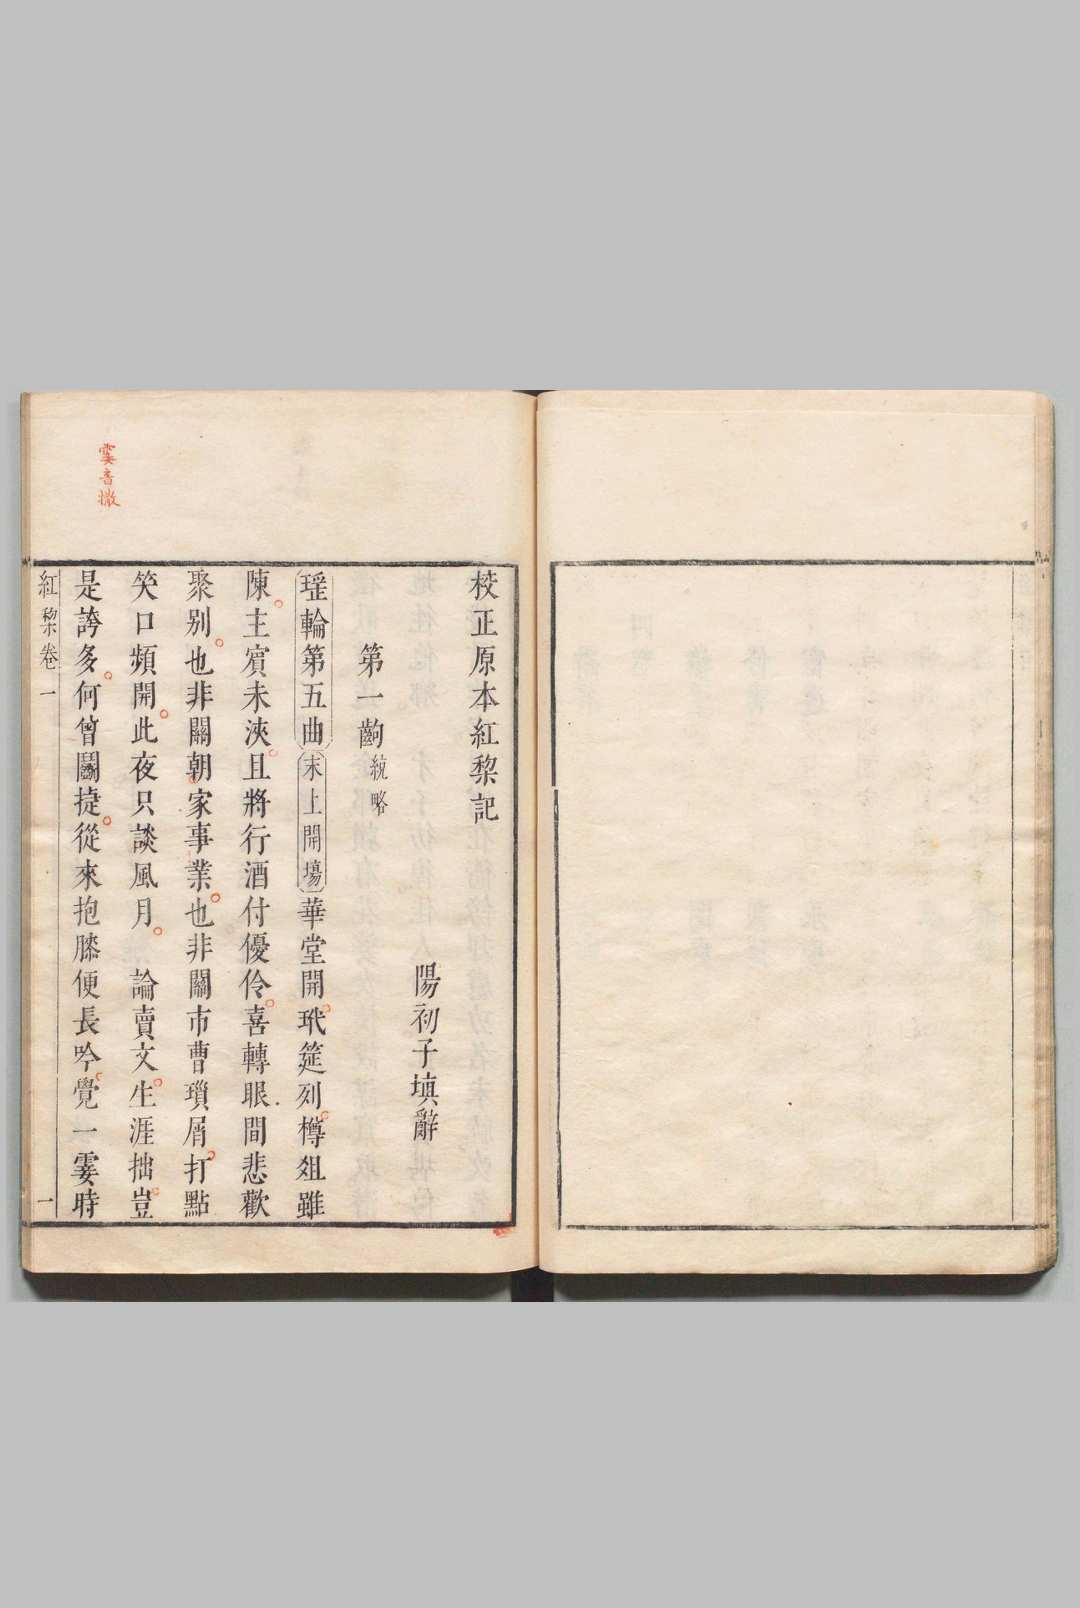 校正原本紅棃記
陽初子填辭
第一齣 統略
瑶輪第五曲 末上開塲 華堂開玳筵列樽俎雖
陳主賓未浹且將行酒付優伶喜轉眼間悲歡
聚别也非關朝家事業也非關市曹瑣屑打點
笑口頻開此夜只談風月 論賣文生涯拙豈
是誇多何曾鬬㨗從來抱膝便長吟覺一霎時
紅棃卷一 一
霎音撒